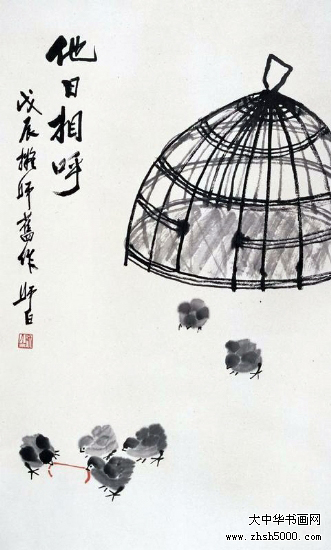 他日相呼
戊辰擬師舊作 師白
大中华书画网
www.zhsh5000.com